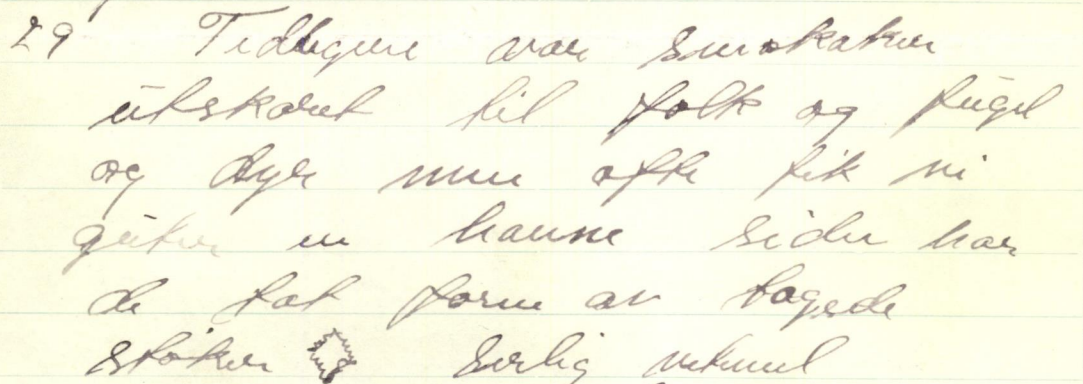 29 Tidligere var smakaker
utskaret til folk og fugel
og dyr men ofte fik vi
guter en hanne siden har
de tat form av tagede
støker serlig